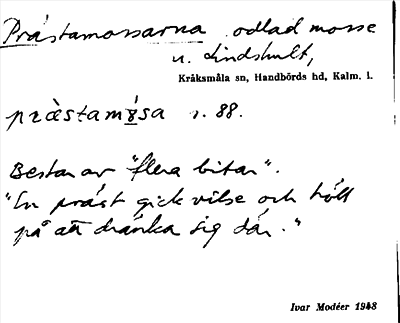 Prästamossarna odlad mosse
u. Lindshult,
Kråksmåla sn, Handbörds hd, Kalm. l.
præ̀stamɷ́sa s. 88.
Består av "flera bitar".
"En präst gick vilse och höll
på att dränka sig där."
Ivar Modéer 1948